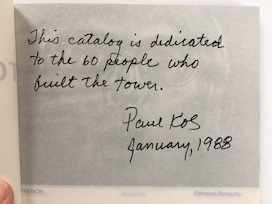 This catalog is dedicated
to the 60 people who
built the tower.
Paul Kos
January, 1988